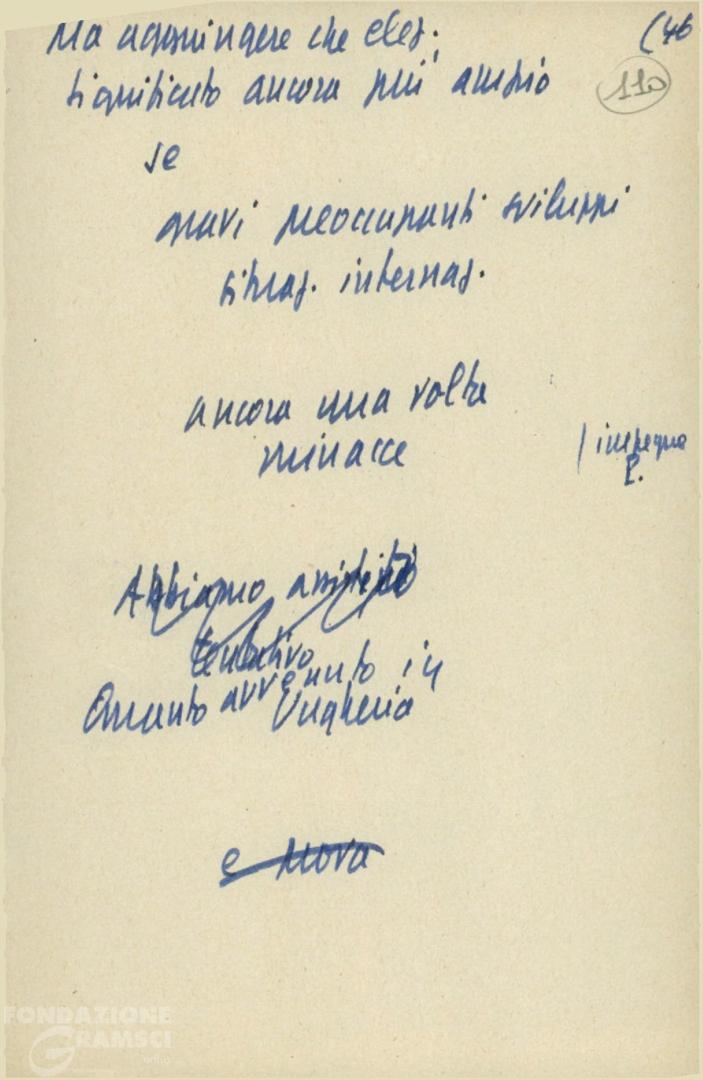 Ma aggiungere che elez.
(46
110
significato ancora più ampio
se
gravi preoccupanti sviluppi
situaz. internaz.
ancora una volta
minacce
impegno
P.
Abbiamo assistito
tentativo
Quanto avvenuto in
Ungheria
e
FONDAZIONE
GRAMSCI